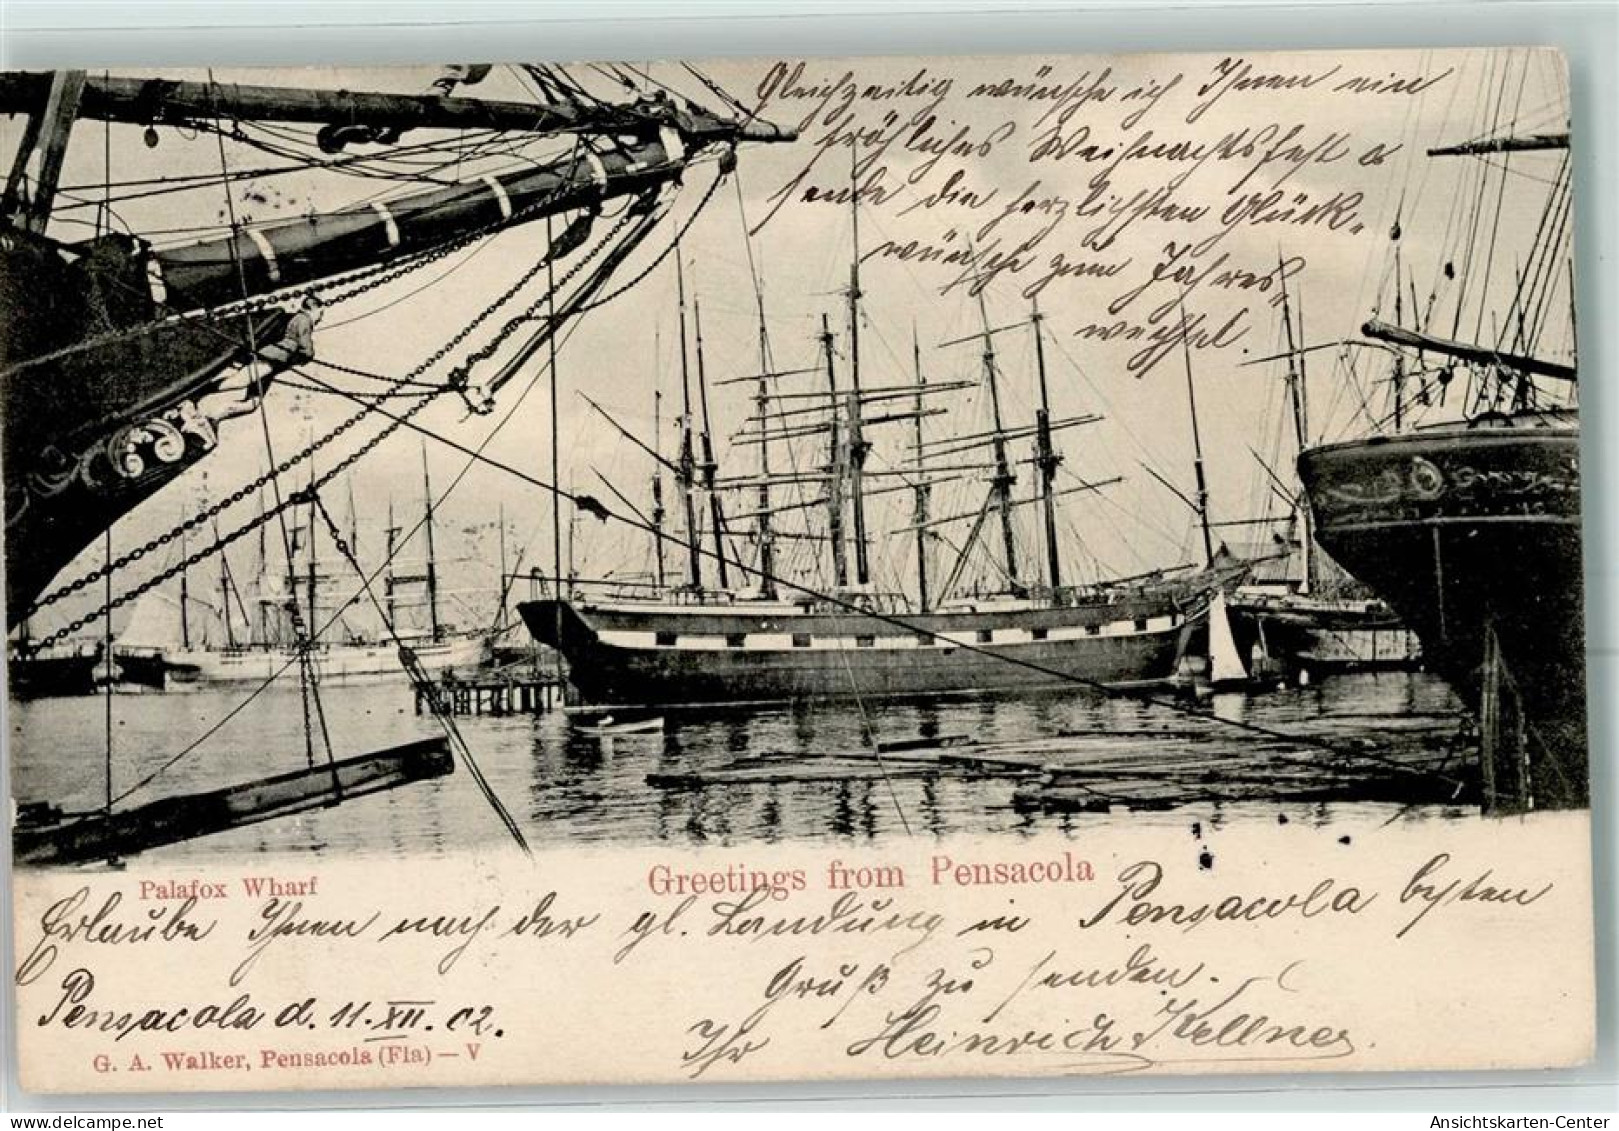 Gleichzeitig wünsche ich Ihnen ein
fröhliches Weihnachtsfest &
sende die herzlichsten Glück-
wünsche zum Jahres-
wechsel.
Palafox Wharf
Greetings from Pensacola
Erlaube Ihnen nach der gl. Landung in Pensacola besten
Gruß zu senden.
Pensacola d. 11. XII. 02.
Ihr Heinrich Kellner.
G. A. Walker, Pensacola (Fla) — V
Ansichtskarten-Center